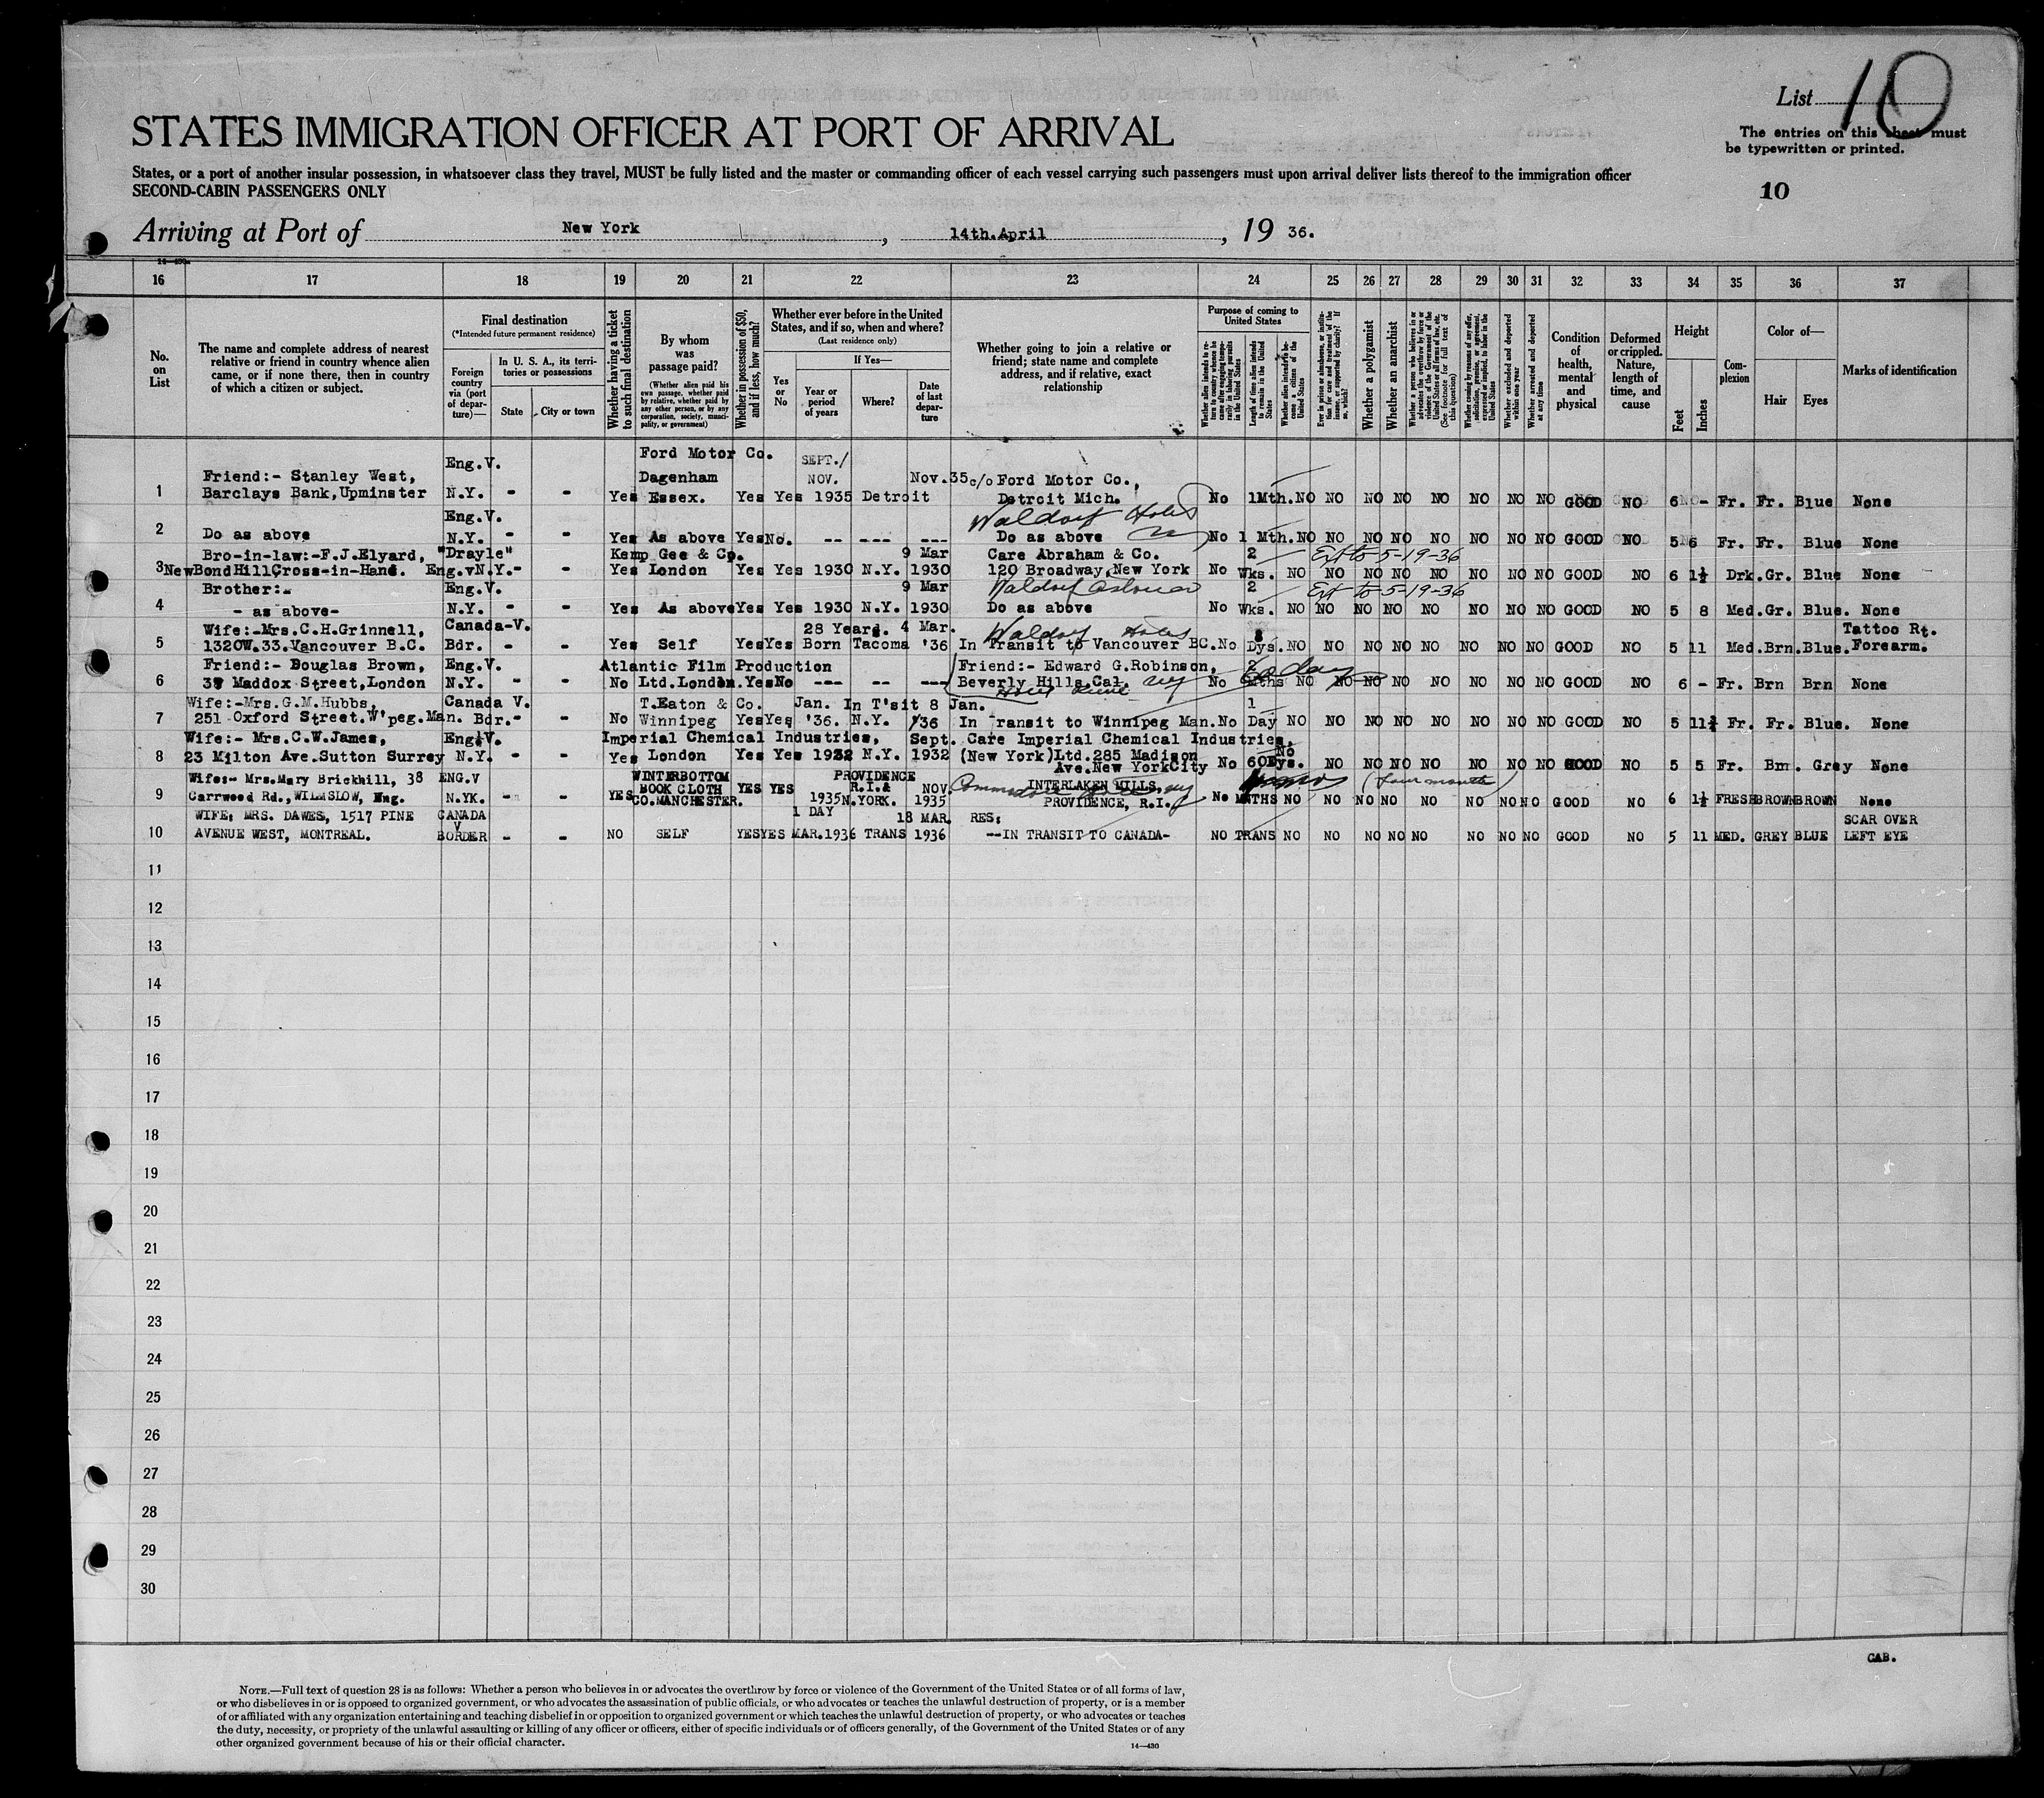 List 10
The entries on this sheet must
be typewritten or printed.
10
STATES IMMIGRATION OFFICER AT PORT OF ARRIVAL
States, or a port of another insular possession, in whatsoever class they travel, MUST be fully listed and the master or commanding officer of each vessel carrying such passengers must upon arrival deliver lists thereof to the immigration officer
SECOND-CABIN PASSENGERS ONLY
Arriving at Port of New York, 14th.April, 19 36.
16 17 18 19 20 21 22 23 24 25 26 27 28 29 30 31 32 33 34 35 36 37
No. on List
The name and complete address of nearest
relative or friend in country whence alien
came, or if none there, then in country
of which a citizen or subject.
Final destination
(*Intended future permanent residence)
Foreign country via (port of departure)—
In U. S. A., its territories or possessions
State
City or town
Whether having a ticket to such final destination
By whom was passage paid?
(Whether alien paid his own passage, whether paid by relative, whether paid by any other person, or by any corporation, society, municipality, or government)
Whether in possession of $50, and if less, how much?
Whether ever before in the United States, and if so, when and where?
(Last residence only)
Yes or No
If Yes—
Year or period of years
Where?
Date of last departure
Whether going to join a relative or
friend; state name and complete
address, and if relative, exact
relationship
Purpose of coming to United States
Length of time alien intends to remain in the United States
Whether alien intends to become a citizen of the United States
Whether a polygamist
Whether an anarchist
Whether excluded and deported within one year
Whether arrested and deported at any time
Condition of health, mental and physical
Deformed or crippled. Nature, length of time, and cause
Height
Feet
Inches
Complexion
Color of—
Hair
Eyes
Marks of identification
Ford Motor Co.
Eng.V. SEPT./
Friend:- Stanley West, Dagenham NOV. Nov.35 c/o Ford Motor Co.,
1 Barclays Bank,Upminster N.Y. - - Yes Essex. Yes Yes 1935 Detroit Detroit Mich. No 1Mth. NO NO NO NO NO NO NO NO GOOD NO 6 - Fr. Fr. Blue None
Eng.V. Waldorf Hotel
2 Do as above N.Y. - - Yes As above Yes No. -- --- --- Do as above No 1 Mth. NO NO NO NO NO NO NO NO GOOD NO 5 6 Fr. Fr. Blue None
Bro-in-law:-F.J.Elyard, "Drayle" Kemp Gee & Co. 9 Mar Care Abraham & Co. 2 Ext to 5-19-36
3 New Bond Hill Cross-in-Hand. Eng.vN.Y.- - Yes London Yes Yes 1930 N.Y. 1930 120 Broadway New York No Wks. NO NO NO NO NO NO NO NO GOOD NO 6 1½ Drk. Gr. Blue None
Brother:- Eng.V. 9 Mar Waldorf Astoria 2 Ext to 5-19-36
4 - as above- N.Y. - - Yes As above Yes Yes 1930 N.Y. 1930 Do as above No Wks. NO NO NO NO NO NO NO NO GOOD NO 5 8 Med. Gr. Blue. None
Wife:-Mrs.C.H.Grinnell, Canada-V. 28 Years. 4 Mar. Waldorf Hotel 8 Tattoo Rt.
5 1320W.33.Vancouver B.C. Bdr. - - Yes Self Yes Yes Born Tacoma '36 In Transit to Vancouver BC. No Dys. NO NO NO NO NO NO NO NO GOOD NO 5 11 Med. Brn. Blue. Forearm.
Friend:- Douglas Brown, Eng.V. Atlantic Film Production Friend:- Edward G.Robinson, 60 day
6 37 Maddox Street,London N.Y. - - No Ltd.London. Yes No --- -- --- Beverly Hills Cal. NY No Mths NO NO NO NO NO NO NO NO GOOD NO 6 - Fr. Brn Brn None
Wife:-Mrs.G.M.Hubbs, Canada V. T.Eaton & Co. Jan. In T'sit 8 Jan. 1
7 251 Oxford Street.W'peg.Man. Bdr.- - No Winnipeg Yes Yes '36. N.Y. '36 In Transit to Winnipeg Man. No Day NO NO NO NO NO NO NO NO GOOD NO 5 11½ Fr. Fr. Blue. None
Wife:- Mrs.C.W.James, Eng.V. Imperial Chemical Industries, Sept. Care Imperial Chemical Industries,
8 23 Milton Ave.Sutton Surrey N.Y. - - Yes London Yes Yes 1932 N.Y. 1932 (New York)Ltd.285 Madison Ave.New York City No 60Dys. No NO NO NO NO NO NO NO GOOD NO 5 5 Fr. Brn. Grey None
Wife:- Mrs.Mary Brickhill, 38 ENG.V WINTERBOTTOM PROVIDENCE
BOOK CLOTH R.I.& NOV. Commodore INTERLAKEN MILLS, (four month)
9 Carrwood Rd.,WILMSLOW, Eng. N.YK. - - YES CO.MANCHESTER. YES YES 1935 N.YORK. 1935 PROVIDENCE, R.I. No MNTHS NO NO NO NO NO NO NO NO GOOD NO 6 1½ FRESH BROWN BROWN None
WIFE; MRS. DAWES, 1517 PINE CANADA 1 DAY 18 MAR. RES; SCAR OVER
V
10 AVENUE WEST, MONTREAL. BORDER - - NO SELF YES YES MAR.1936 TRANS 1936 --IN TRANSIT TO CANADA- NO TRANS NO NO NO NO NO NO NO NO GOOD NO 5 11 MED. GREY BLUE LEFT EYE
11
12
13
14
15
16
17
18
19
20
21
22
23
24
25
26
27
28
29
30
CAB.
NOTE.—Full text of question 28 is as follows: Whether a person who believes in or advocates the overthrow by force or violence of the Government of the United States or of all forms of law,
or who disbelieves in or is opposed to organized government, or who advocates the assassination of public officials, or who advocates or teaches the unlawful destruction of property, or is a member
of or affiliated with any organization entertaining and teaching disbelief in or opposition to organized government or which teaches the unlawful destruction of property, or who advocates or teaches
the duty, necessity, or propriety of the unlawful assaulting or killing of any officer or officers, either of specific individuals or of officers generally, of the Government of the United States or of any
other organized government because of his or their official character.
14—430